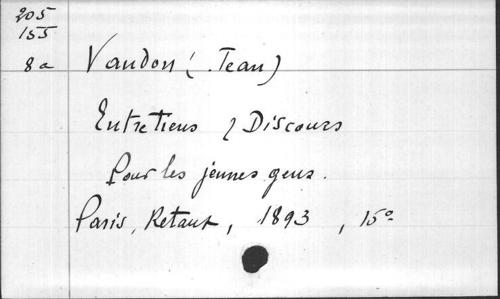 205
155
8a Vaudon (Jean)
Entretiens & Discours
pour les jeunes gens.
Paris, Retaux, 1893, 15º